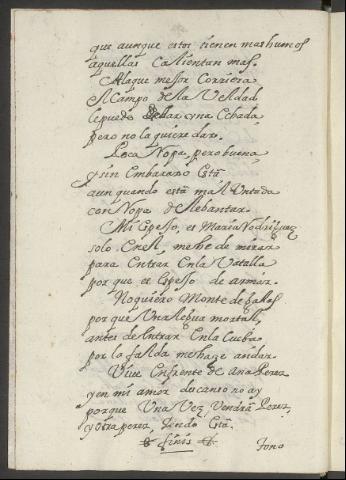 que aunque estos tienen mas humos
aquellas calientan mas.
Ala que mejor corriera
el campo de la Veldad
le puedo dar una Cebada
pero no la quiere dar.
Poca Ropa, pero buena,
y sin Embararo Está
aun quando está mal Untada
con Ropa de Lebantar.
Mi Espeso, es Maria Rodriguez
solo En el, me he de mirar
para Entrar En la Vatalla
por que es Espeso de armar.
No quiero Monte de
por que Una legua mortal,
antes de Entrar En la Cueba
por la falda me haze andar.
Vive Enfrente de Ana Perez
y en mi amor descanso no ay
porque Una Vez, Vendrá Perez,
y otra perez, Yendo Está.
finis
Tono